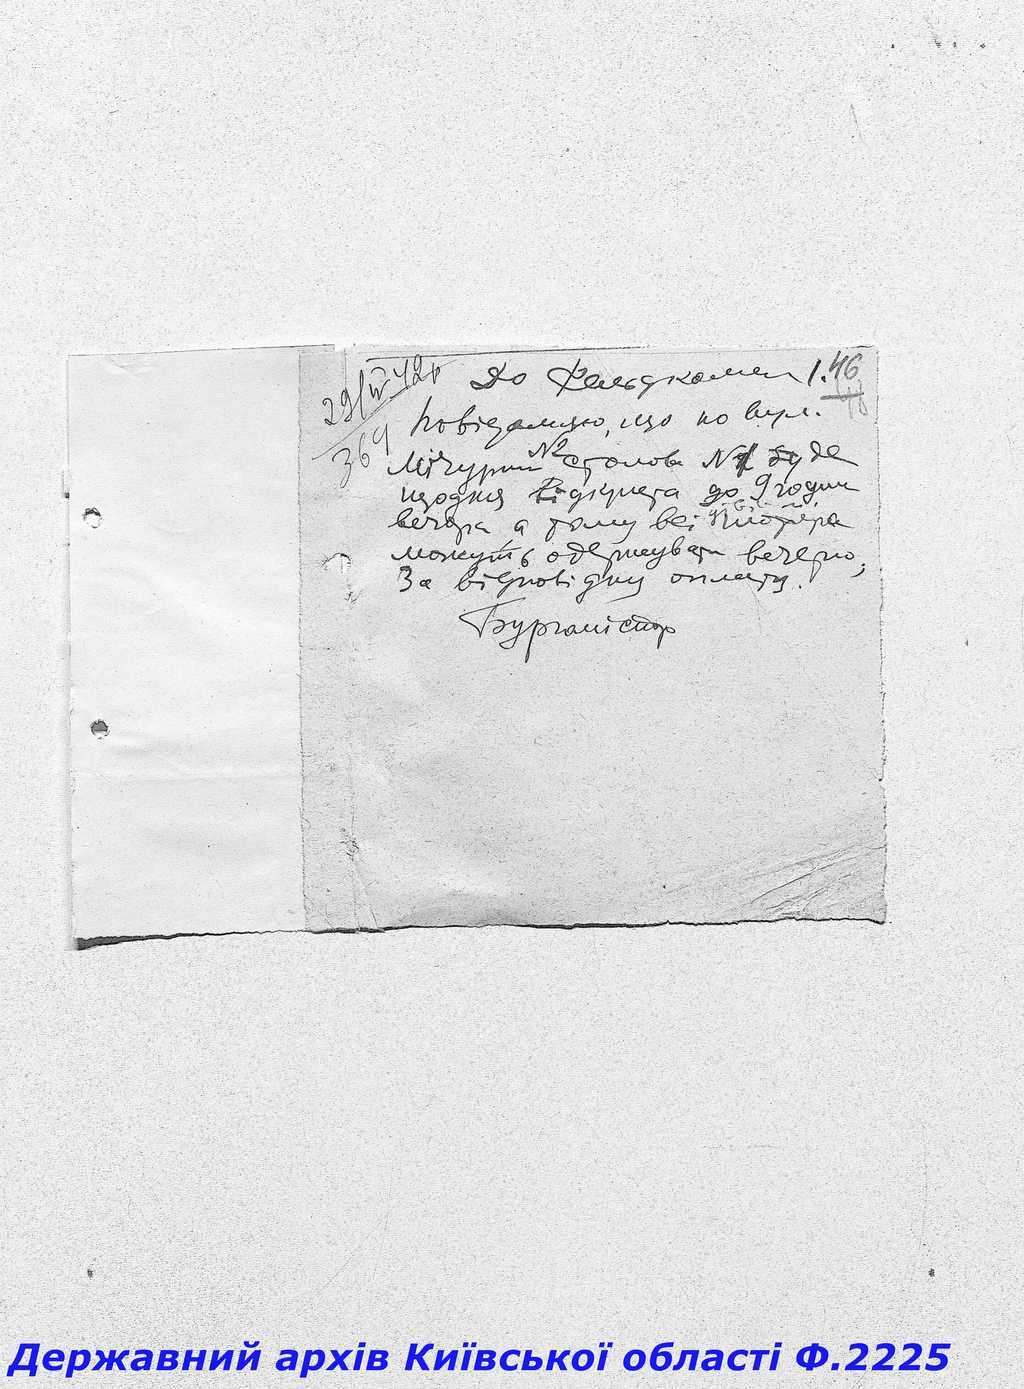 29/IV 42р
369
До Фельдкомен
1.46
48
Повідомляю, що по вул.
Мічурин №2 столова №1 буде
щодня відкрита до 9 годин
вечора, а тому всі
можуть одержувати вечерю,
За відповідну оплату.
Бургомістр
Державний архів Київської області Ф.2225